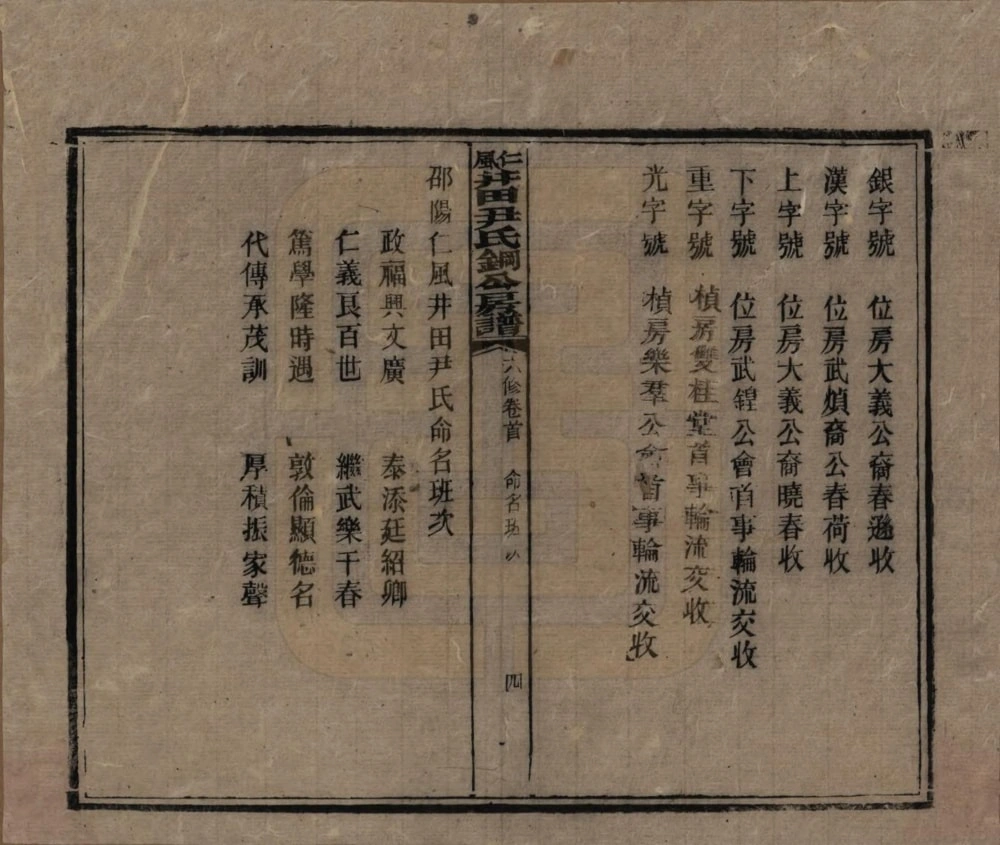 銀字號　位房大義公裔春遜收
漢字號　位房武媜裔公春荷收
上字號　位房大義公裔曉春收
下字號　位房武鍠公會首事輪流交收
重字號　楨房雙桂堂首事輪流交收
光字號　楨房樂羣公會首事輪流交收
仁風井田尹氏鋼公房譜　六修卷首　命名班次　四
邵陽仁風井田尹氏命名班次
政福興文廣　泰添廷紹卿
仁義良百世　繼武樂千春
篤學隆時遇　敦倫顯德名
代傳承茂訓　厚積振家聲